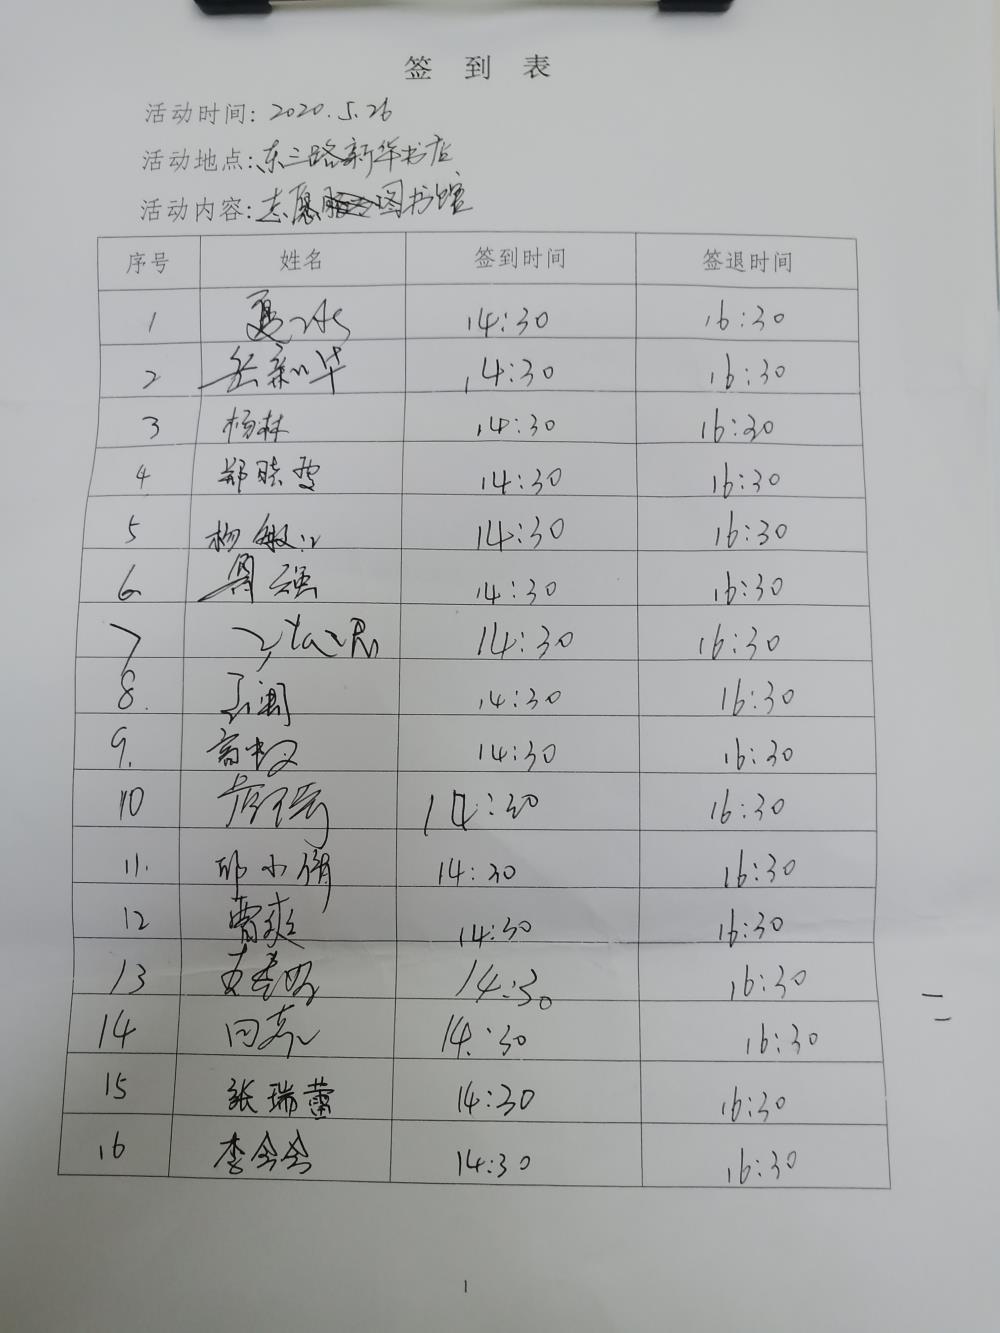 签 到 表
活动时间: 2020.5.26
活动地点: 东三路新华书店
活动内容: 志愿 图书馆
序号 姓名 签到时间 签退时间
1 14:30 16:30
2 岳新华 14:30 16:30
3 杨林 14:30 16:30
4 郑晓雯 14:30 16:30
5 杨敏 14:30 16:30
6. 强 14:30 16:30
7 14:30 16:30
8. 14:30 16:30
9. 高 14:30 16:30
10 14:30 16:30
11. 邱小倩 14:30 16:30
12 曹爽 14:30 16:30
13 14:30 16:30
14 14:30 16:30
15 张瑞蕾 14:30 16:30
16 李会会 14:30 16:30
1